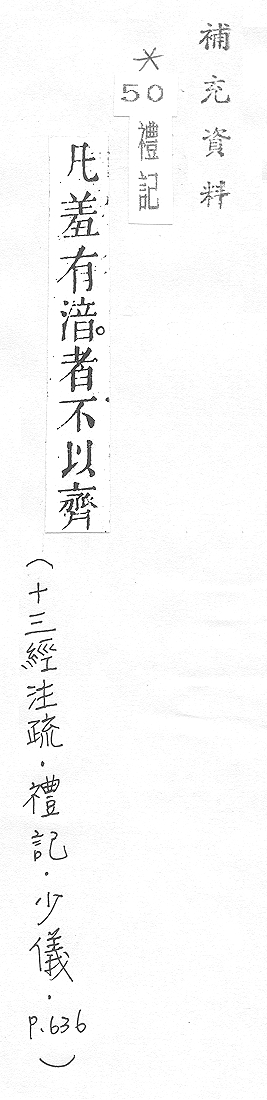 補充資料
*
50
禮記
凡羞有湆。者不以齊
(十三經注疏.禮記.少儀.P.636)